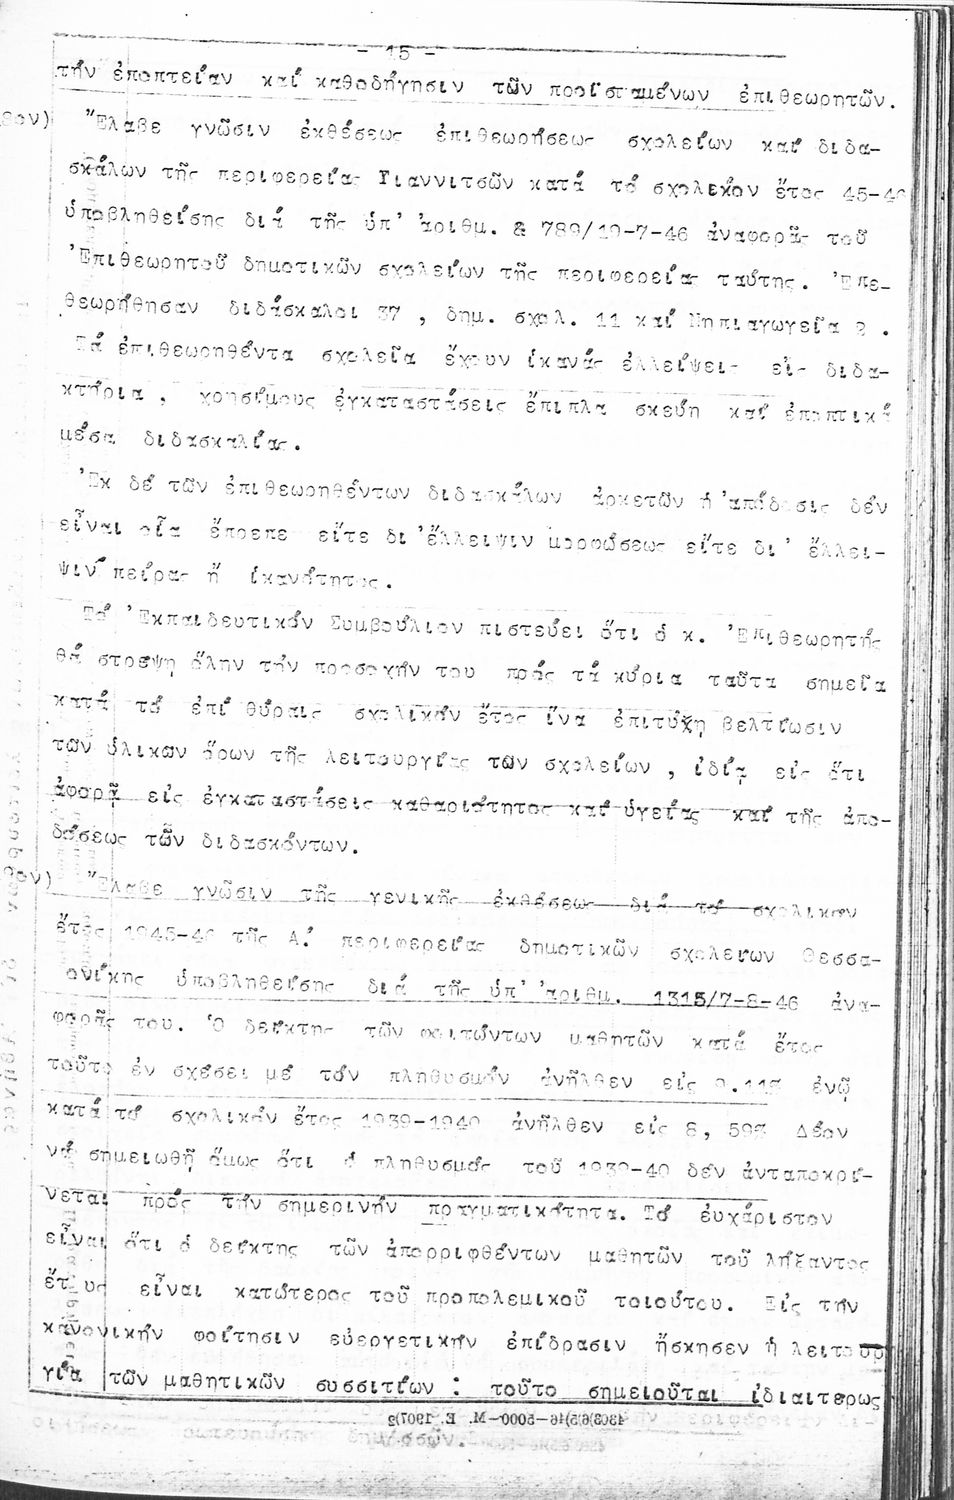 - 15 -
τήν ἐποπτείαν καί καθοδήγησιν τῶν προϊσταμένων ἐπιθεωρητῶν.
8ον) Ἔλαβε γνῶσιν ἐκθέσεως ἐπιθεωρήσεως σχολείων καί διδα-
σκάλων τῆς περιφερείας Γιαννιτσῶν κατά τό σχολικόν ἔτος 45-46
ὑποβληθείσης διά τῆς ὑπ' ἀριθμ. 789/19-7-46 ἀναφορᾶς τοῦ
Ἐπιθεωρητοῦ δημοτικῶν σχολείων τῆς περιφερείας ταύτης. Ἐπε-
θεωρήθησαν διδάσκαλοι 37 , δημ. σχολ. 11 καί Νηπιαγωγεῖα 2 .
Τά ἐπιθεωρηθέντα σχολεῖα ἔχουν ἱκανάς ἐλλείψεις εἰς διδα-
κτήρια , χρησίμους ἐγκαταστάσεις ἔπιπλα σκεύη καί ἐποπτικά
μέσα διδασκαλίας.
Ἐκ δέ τῶν ἐπιθεωρηθέντων διδασκάλων ἀρκετῶν ἡ ἀπίδοσις δέν
εἶναι οἵα ἔπρεπε εἴτε δι' ἔλλειψιν μορφώσεως εἴτε δι' ἔλλει-
ψιν πείρας ἤ ἱκανότητος.
Τό Ἐκπαιδευτικόν Συμβούλιον πιστεύει ὅτι ὁ κ. Ἐπιθεωρητής
θά στρεψη ὅλην τήν προσοχήν του πρός τά κύρια ταῦτα σημεῖα
κατά τό ἐπί θύραις σχολικόν ἔτος ἵνα ἐπιτύχη βελτίωσιν
τῶν ὑλικων ὅρων τῆς λειτουργίας τῶν σχολείων , ἰδίᾳ εἰς ὅτι
ἀφορᾷ εἰς ἐγκαταστάσεις καθαριότητος καί ὑγείας καί τῆς ἀπο-
δόσεως τῶν διδασκόντων.
9ον) Ἔλαβε γνῶσιν τῆς γενικῆς ἐκθέσεως διά τό σχολικόν
ἔτος 1945-46 τῆς Α! περιφερείας δημοτικῶν σχολείων Θεσσα-
ονίκης ὑποβληθείσης διά τῆς ὑπ' ἀριθμ. 1315/7-8-46 ἀνα-
φορᾶς του. Ὁ δείκτης τῶν φοιτώντων μαθητῶν κατά ἔτος
τοῦτο ἐν σχέσει μέ τόν πληθυσμόν ἀνῆλθεν εἰς 9.11% ἐνῷ
κατά τό σχολικόν ἔτος 1939-1940 ἀνῆλθεν εἰς 8, 59% Δέον
νά σημειωθῇ ὅμως ὅτι ὁ πληθυσμός τοῦ 1939-40 δέν ἀνταποκρί-
νεται πρός τήν σημερινήν πραγματικότητα. Τό εὐχάριστον
εἶναι ὅτι ὁ δείκτης τῶν ἀπορριφθέντων μαθητῶν τοῦ λήξαντος
ἔτ υς εἶναι κατώτερος τοῦ προπολεμικοῦ τοιούτου. Εἰς τήν
κανονικήν φοίτησιν εὐεργετικήν ἐπίδρασιν ἤσκησεν ἡ λειτουρ
γία τῶν μαθητικῶν συσσιτίων : τοῦτο σημειοῦται ἰδιαιτερως